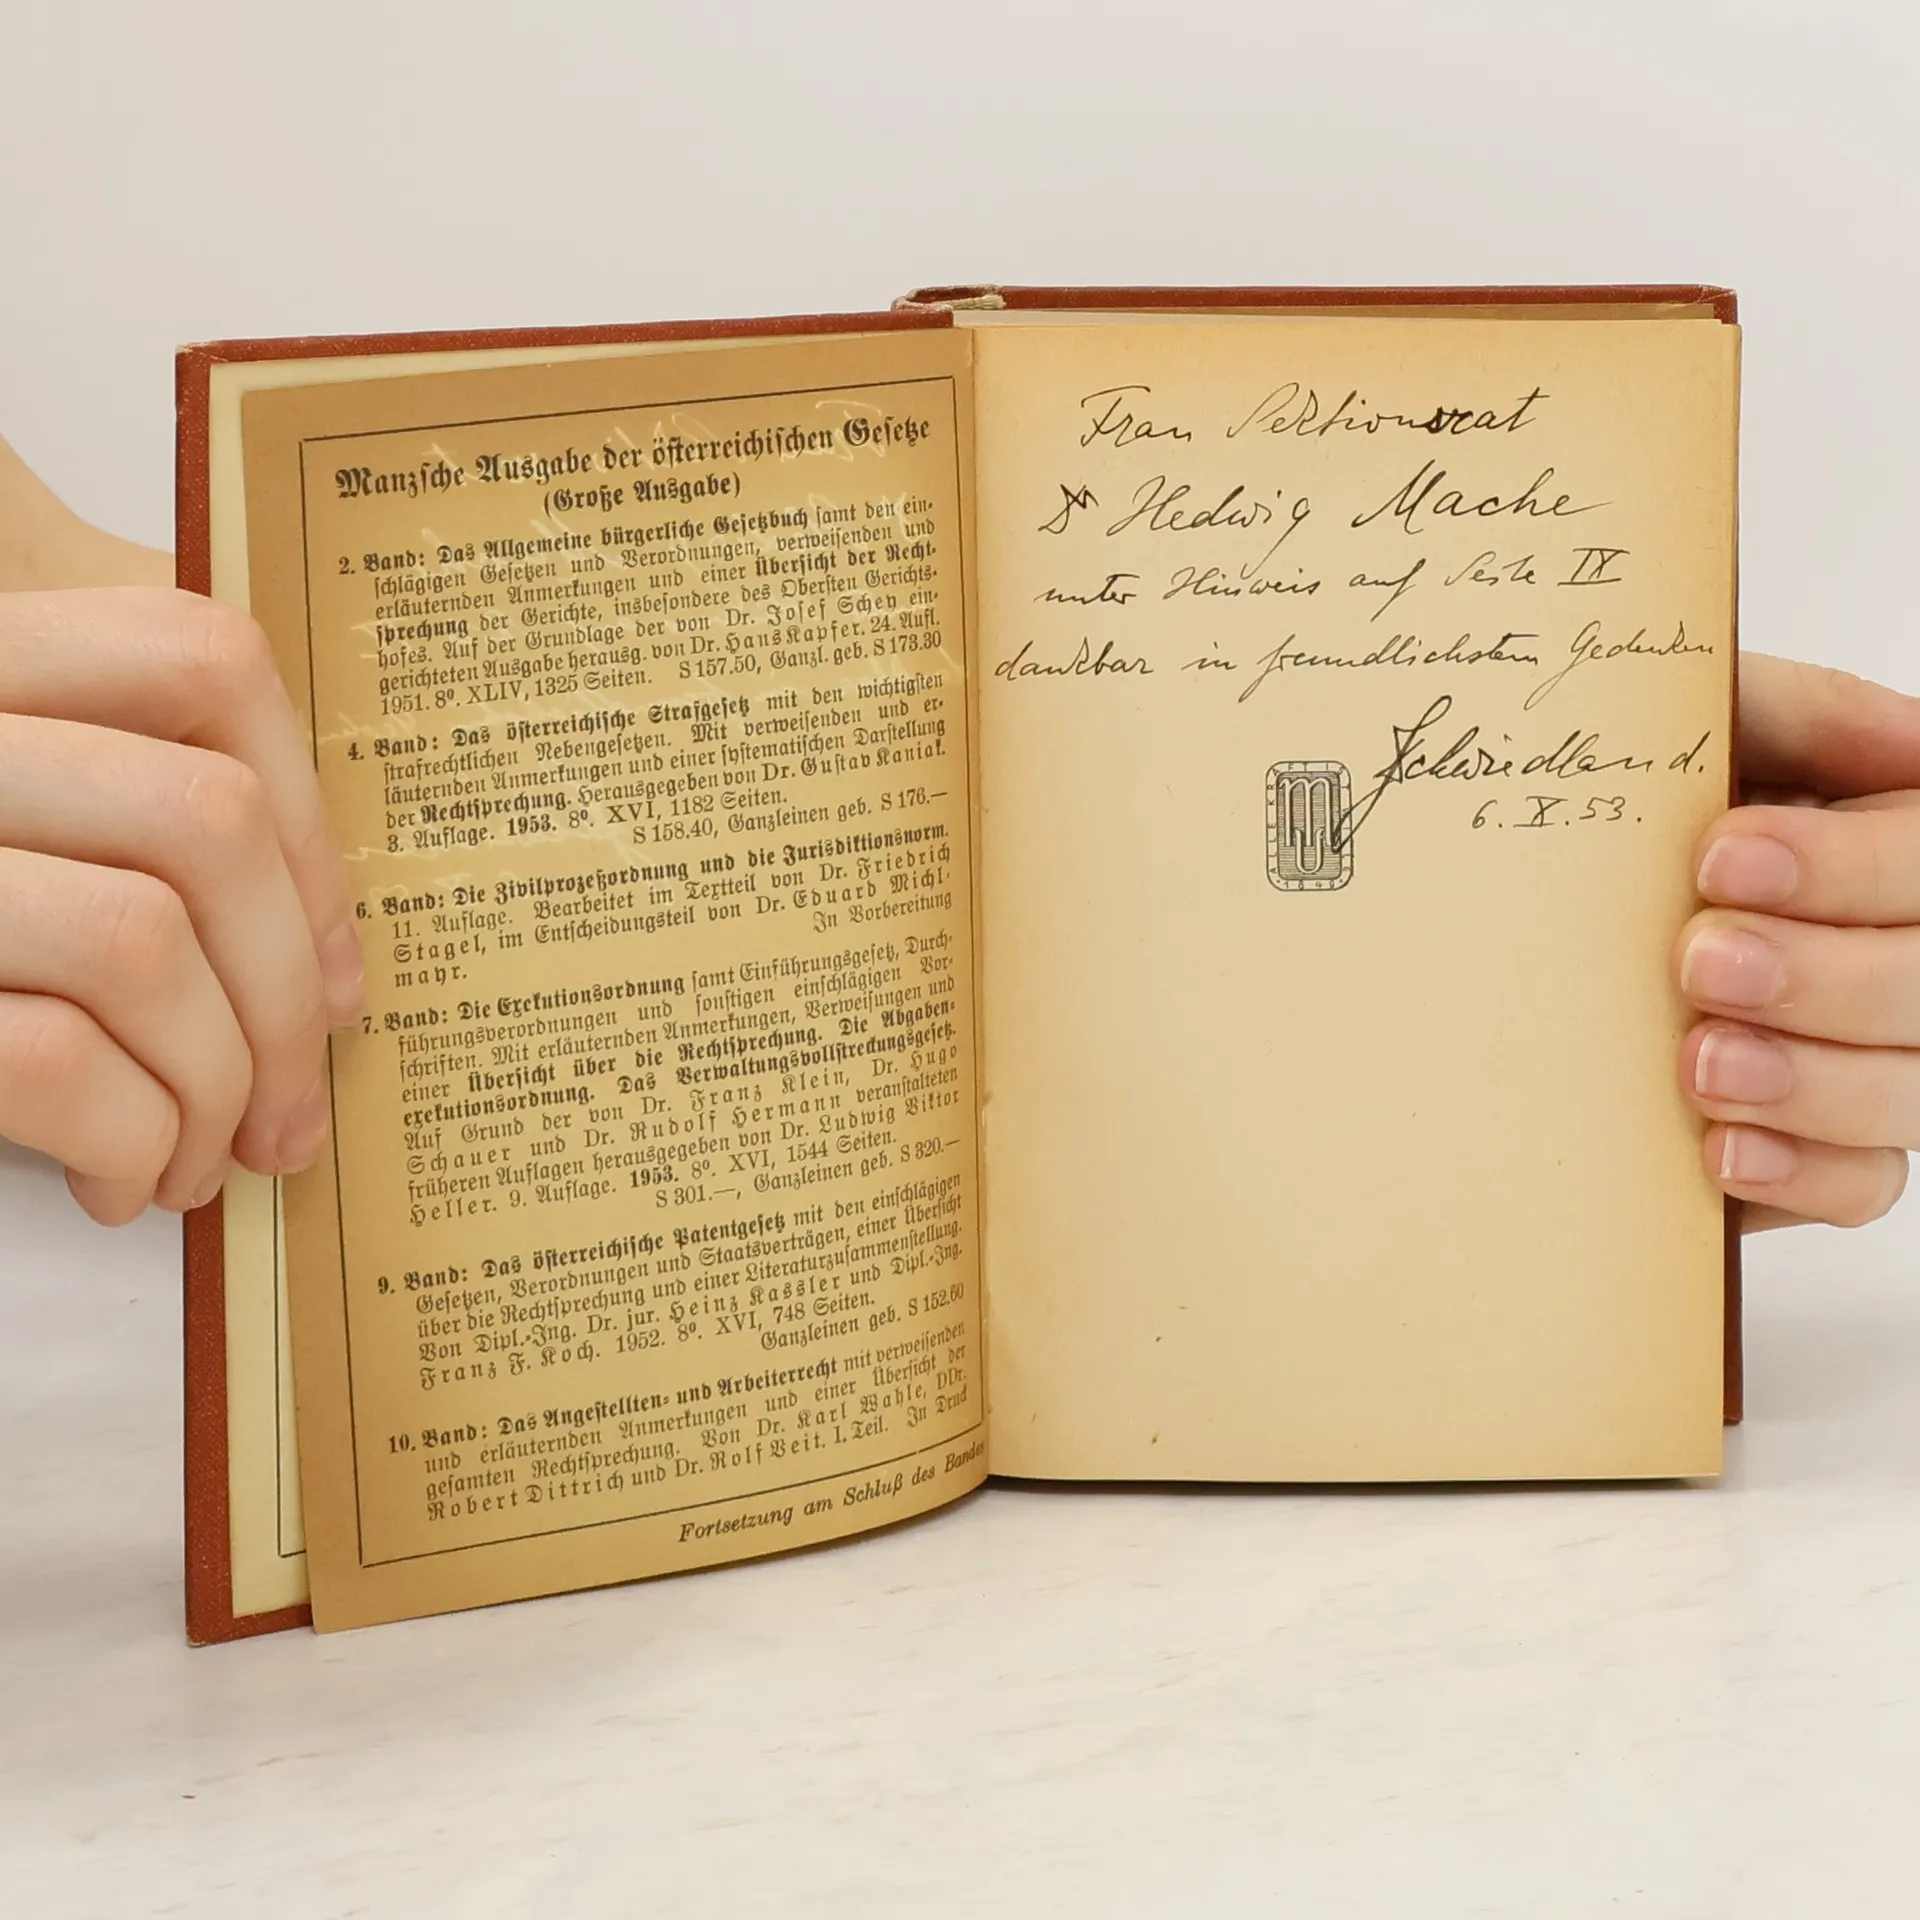 Manzsche Ausgabe der österreichischen Gesetze
(Große Ausgabe)
2. Band: Das Allgemeine bürgerliche Gesetzbuch samt den ein-
schlägigen Gesetzen und Verordnungen, verweisenden und
erläuternden Anmerkungen und einer Übersicht der Recht-
sprechung der Gerichte, insbesondere des Obersten Gerichts-
hofes. Auf der Grundlage der von Dr. Josef Schey ein-
gerichteten Ausgabe herausg. von Dr. Hans Kapfer. 24. Aufl.
1951. 8⁰. XLIV, 1325 Seiten. S 157.50, Ganzl. geb. S 173.30
4. Band: Das österreichische Strafgesetz mit den wichtigsten
strafrechtlichen Nebengesetzen. Mit verweisenden und er-
läuternden Anmerkungen und einer systematischen Darstellung
der Rechtsprechung. Herausgegeben von Dr. Gustav Kaniak.
3. Auflage. 1953. 8⁰. XVI, 1182 Seiten.
S 158.40, Ganzleinen geb. S 176.—
6. Band: Die Zivilprozeßordnung und die Jurisdiktionsnorm.
11. Auflage. Bearbeitet im Textteil von Dr. Friedrich
Stagel, im Entscheidungsteil von Dr. Eduard Michl-
mayr. In Vorbereitung
7. Band: Die Exekutionsordnung samt Einführungsgesetz, Durch-
führungsverordnungen und sonstigen einschlägigen Vor-
schriften. Mit erläuternden Anmerkungen, Verweisungen und
einer Übersicht über die Rechtsprechung. Die Abgaben-
exekutionsordnung. Das Verwaltungsvollstreckungsgesetz.
Auf Grund der von Dr. Franz Klein, Dr. Hugo
Schauer und Dr. Rudolf Hermann veranstalteten
früheren Auflagen herausgegeben von Dr. Ludwig Viktor
Heller. 9. Auflage. 1953. 8⁰. XVI, 1544 Seiten.
S 301.—, Ganzleinen geb. S 320.—
9. Band: Das österreichische Patentgesetz mit den einschlägigen
Gesetzen, Verordnungen und Staatsverträgen, einer Übersicht
über die Rechtsprechung und einer Literaturzusammenstellung.
Von Dipl.-Ing. Dr. jur. Heinz Kassler und Dipl.-Ing.
Franz F. Koch. 1952. 8⁰. XVI, 748 Seiten.
Ganzleinen geb. S 152.60
10. Band: Das Angestellten- und Arbeiterrecht mit verweisenden
und erläuternden Anmerkungen und einer Übersicht der
gesamten Rechtsprechung. Von Dr. Karl Wahle, DDr.
Robert Dittrich und Dr. Rolf Veit. I. Teil. In Druck
Fortsetzung am Schluß des Bandes
Frau Sektionsrat
Dr Hedwig Mache
unter Hinweis auf Seite IX
dankbar in freundlichstem Gedenken
Schwiedland.
6. X. 53.
1849